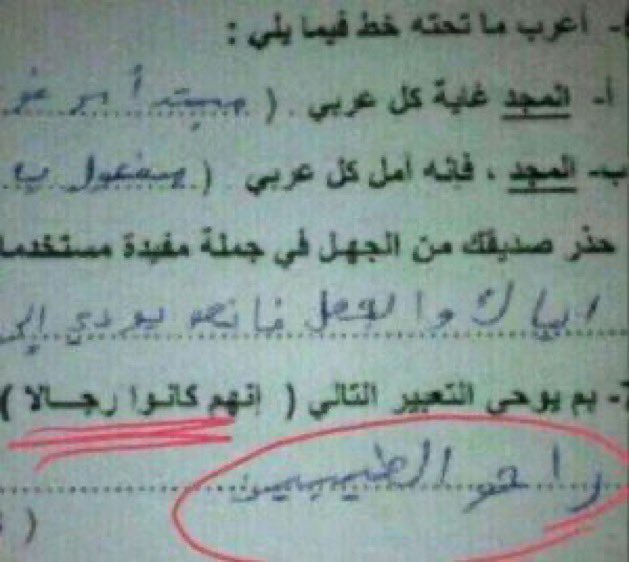 - أعرب ما تحته خط فيما يلي :
أ- المجد غاية كل عربي . ( مبتدأ مرفو
ب- المجد ، فإنه أمل كل عربي ( مفعول ب
حذر صديقك من الجهل في جملة مفيدة مستخدما
اياك والجهل فانه يودي إلى
- بم يوحي التعبير التالي ( إنهم كانوا رجالا )
راحو الطيبين
(